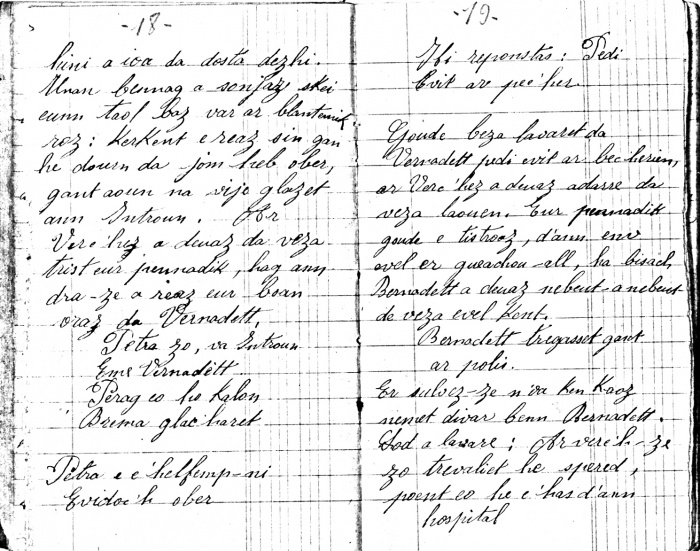 -18-
hini a ioa da dosta dezhi.
Unan bennag a sonjaz skei
eunn taol baz var ar blantennik
roz: kerkent e reaz sin gan
he dourn da jom heb ober,
gant aoun na vije glazet
ann Introun. Ar
Verc'hez a deuaz da veza
trist eur pennadik, hag ann
dra-ze a reaz eur boan
vraz da Vernadett.
Petra zo, va Introun
Eme Vernadett.
Perag eo ho Kalon
Brema glac'haret
Petra e c'helfemp-ni
Evidoc'h ober
-19-
Hi reponstas: Pedi
Evit ar pec'her.
Goude beza lavaret da
Vernadett pedi evit ar bec'herien,
ar Verc'hez a deuaz adarre da
veza laouen. Eur pennadik
goude e tistroaz, d'ann env
evel er gweachou-all, ha bisach
Bernadett a deuaz nebeut-a-nebeut
da veza evel kent.
Bernadett tregasset gant
ar polis.
Er sulvez-ze n'oa ken Kaoz
nemet divar benn Bernadett.
Dod a lavare: Ar verc'h-ze
zo trevaliet he spered,
poent eo he c'has d'ann
hospital